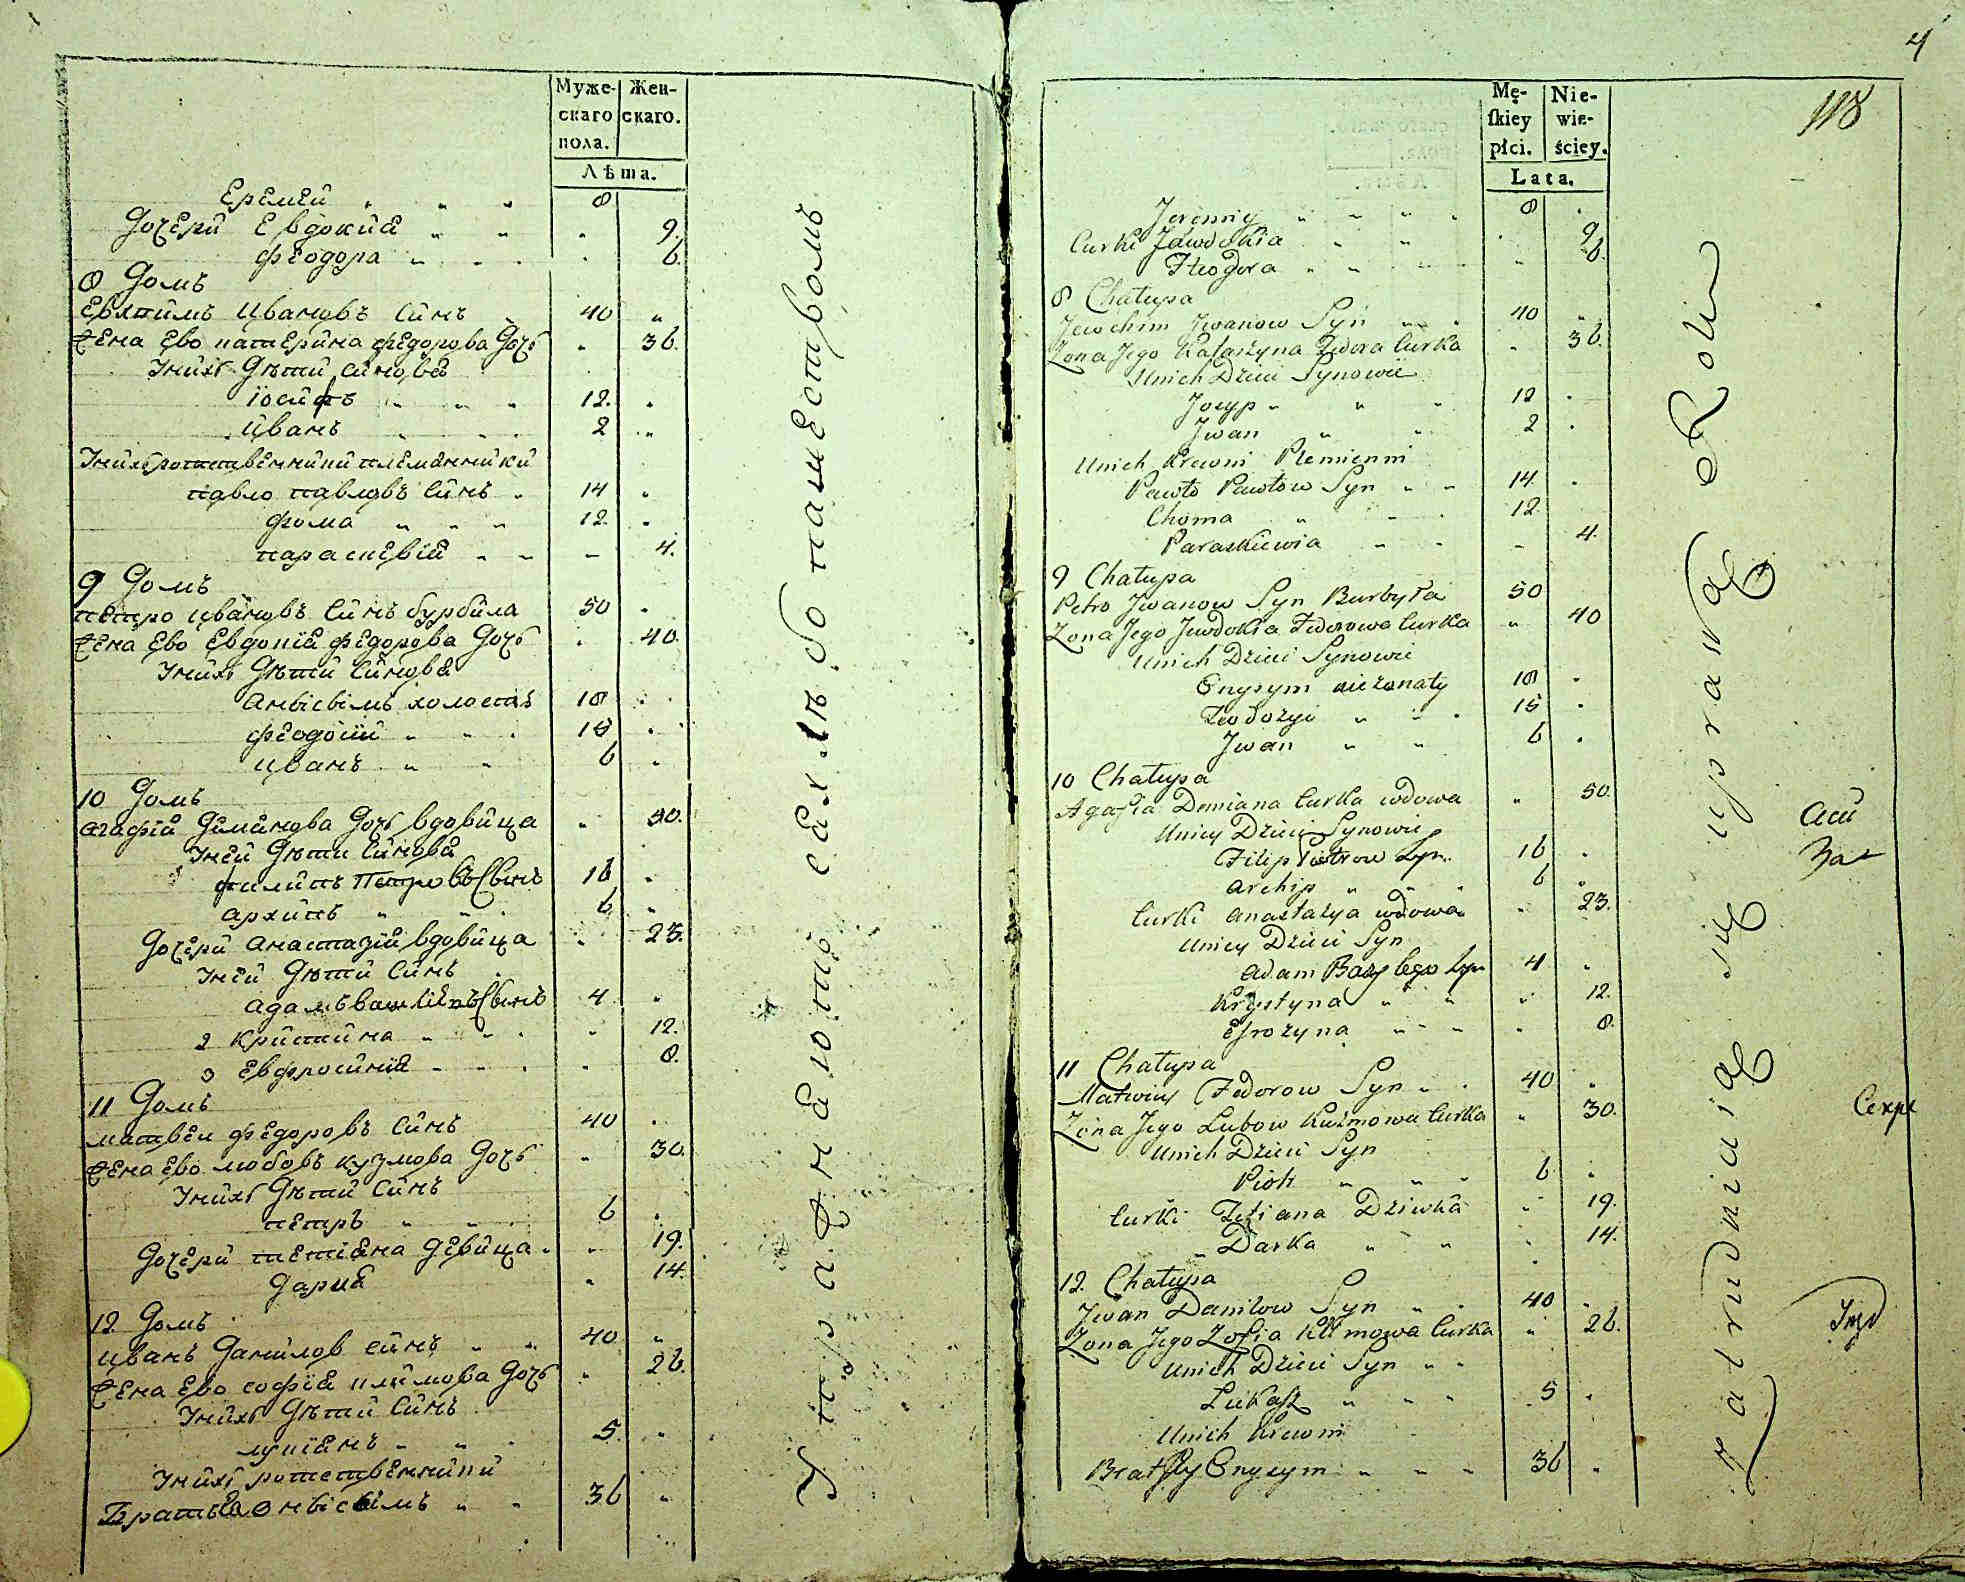 Муже-
скаго
пола.
Жен-
скаго.
Лѣта.
Еремей " " " 8
Дочери Евдокия " " " 9.
Феодора " " " 6.
8 Домъ
Евхтимъ Ивановъ Синъ 40 "
Жена Ево катерина федорова Дочь " 36.
Унихъ Дѣти Синовя
Іосифъ " " " 12. "
Иванъ " " " 2 "
Унихъ ротственники племенники
павло павловъ Синъ " 14 "
фома " " " 12. "
параскевия " " – 4.
9 Домъ
петро ивановъ Синъ бурбила 50 "
Жена Ево Евдокия федорова Дочь " 40.
Унихъ Дѣти Синовя
Анисимъ холостъ 18 "
феодосий " " " 15 "
иванъ " " 6 "
10 Домъ
агафия Димянова Дочь вдовица " 50.
Уней Дѣти Синовя
филипъ Петровъ Сынъ 16 "
архипъ " " " 6 "
Дочери анастазия вдовица " 23.
Уней Дѣти Синъ
адамъ Сынъ 4 "
2 Кристина " " " 12.
3 Евфросиния " " " 8.
11 Домъ
матвеи федоровъ Синъ 40 "
Жена Ево любовъ кузмова Дочь " 30.
Унихъ Дѣти Синъ
петръ " " 6 "
Дочери тетіяна девица " " 19.
дария " 14.
12 Домъ
иванъ Данилов синъ " " 40 "
Жена Ево софия климова Дочь " 26.
Унихъ Дѣти Синъ
лукіянъ " " 5. "
Унихъ ротственники
Братья Онисимъ " " 36 "
Упражняются въ хлебопашествомъ
4
118
Mę-
skiey
płci.
Nie-
wie-
ściey.
Lata.
Jeremiy " " " " 8 "
Curki Jewdokia " " " 9
Fteodora " " " " 6.
8 Chałupa
Jewchim Jwanow Syn " " 40 "
Zona Jego Katarzyna Fedora Curka " 36.
Unich Dzieci Synowie
Jozyp " " " 12 "
Jwan " " 2 "
Unich Krewni Plemienni
Pawło Pawłow Syn " " 14 "
Choma " " " 12
Paraskiewia " " " 4.
9 Chałupa
Petro Jwanow Syn Burbyła 50
Zona Jego Jewdokia Fedorowa Curka " 40
Unich Dzieci Synowie
Onysym nieżonaty 18 "
Teodozyi " " " 15 "
Jwan " " 6 "
10 Chałupa
Agafia Demiana Curka wdowa " 50.
Uniey Dzieci Synowie
Filip Piotrow Syn. 16 "
Archip " " " 6 "
Curki Anastazya wdowa " 23.
Uniey Dzieci Syn
Adam Bazylego Syn 4 "
Krystyna " " " 12.
Efrozyna " " " " 8.
11 Chałupa
Matwiey Fedorow Syn " " 40 "
Zona Jego Lubow Kuźmowa Curka " 30.
Unich Dzieci Syn
Piotr " " " 6 "
Curki Tetiana Dziwka " 19.
Darka " " " " 14.
12 Chałupa
Jwan Daniłow Syn " " 40 "
Zona Jego Zofia Klimowa Curka " 26.
Unich Dzieci Syn " "
Łukasz " " " 5 "
Unich Krewni
Brat Onysym " " " 36 "
Zatrudniaią się uprawą Roli